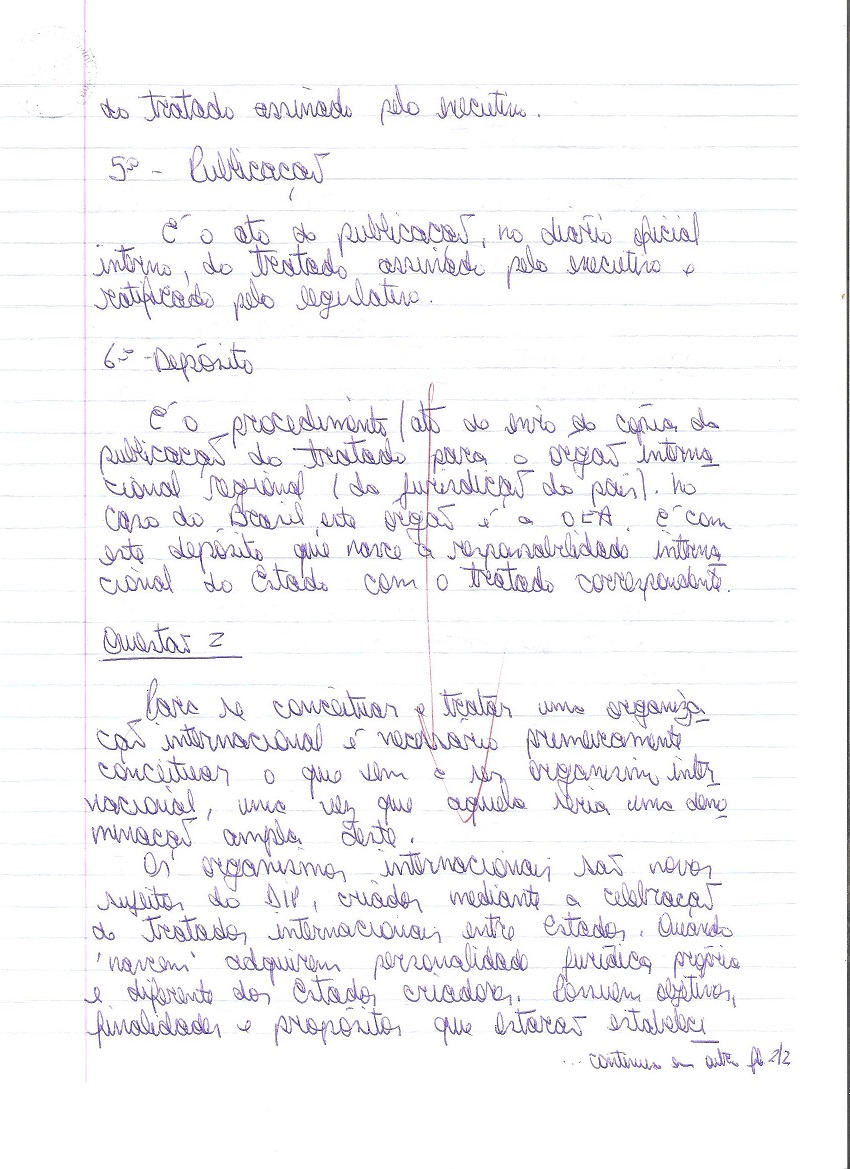 do tratado assinado pelo executivo.
5º - Publicação
É o ato de publicação, no diário oficial
interno, do tratado assinado pelo executivo e
ratificado pelo legislativo.
6º - Depósito
É o procedimento/ato de envio de cópia da
publicação do tratado para o orgão interna
cional regional (da jurisdição do país). No
caso do Brasil este orgão é a OEA. É com
este depósito que nasce a responsabilidade interna
cional do Estado com o tratado correspondente.
Questão 2
Para se conceituar e tratar uma organiza
ção internacional é necessário primeiramente
conceituar o que vem a ser organismo inter
nacional, uma vez que aquela seria uma deno
minação ampla deste.
Os organismos internacionais são novos
sujeitos do DIP, criados mediante a celebração
de tratados internacionais entre Estados. Quando
'nascem' adquirem personalidade jurídica própria
e diferente dos Estados criadores. Possuem objetivos,
finalidades e propósitos que estarão estabeleci
... continua em outra fl 2/2